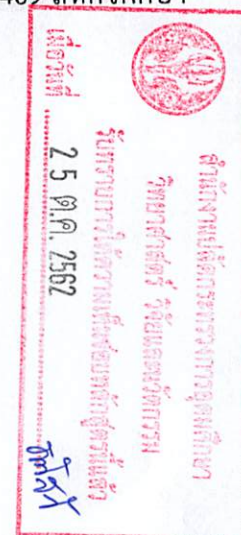 สำนักงานปลัดกระทรวงการอุดมศึกษา
วิทยาศาสตร์ วิจัยและนวัตกรรม
รับทราบการให้ความเห็นชอบหลักสูตรนี้แล้ว
เมื่อวันที่ 25 ต.ค. 2562